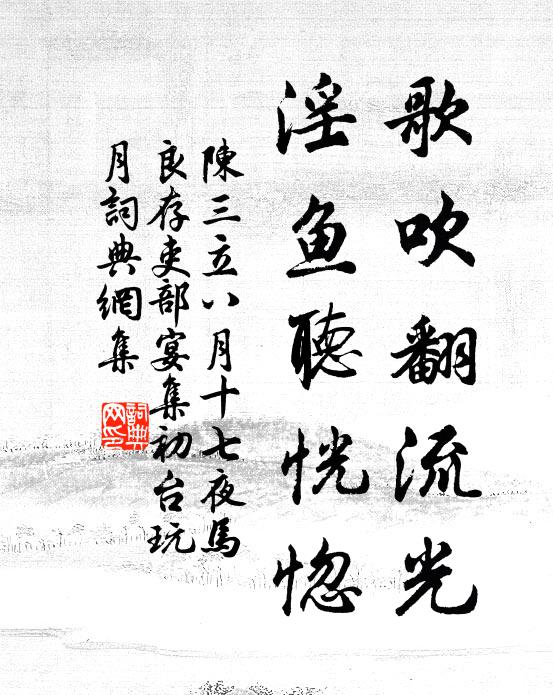 歌吹翻流光
淫鱼聽恍惚
陳三立八月十七夜馬
良存吏部宴集初台玩
月詞典網集
詞典
网印